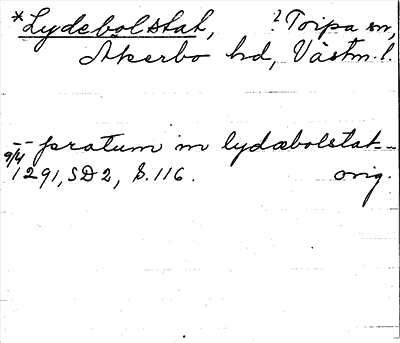 *Lydebolstat, ? Torpa sn,
Åkerbo hd, Västm. l.
-- pratum in lydæbolstat --
9/4 1291, SD 2, S. 116. orig.